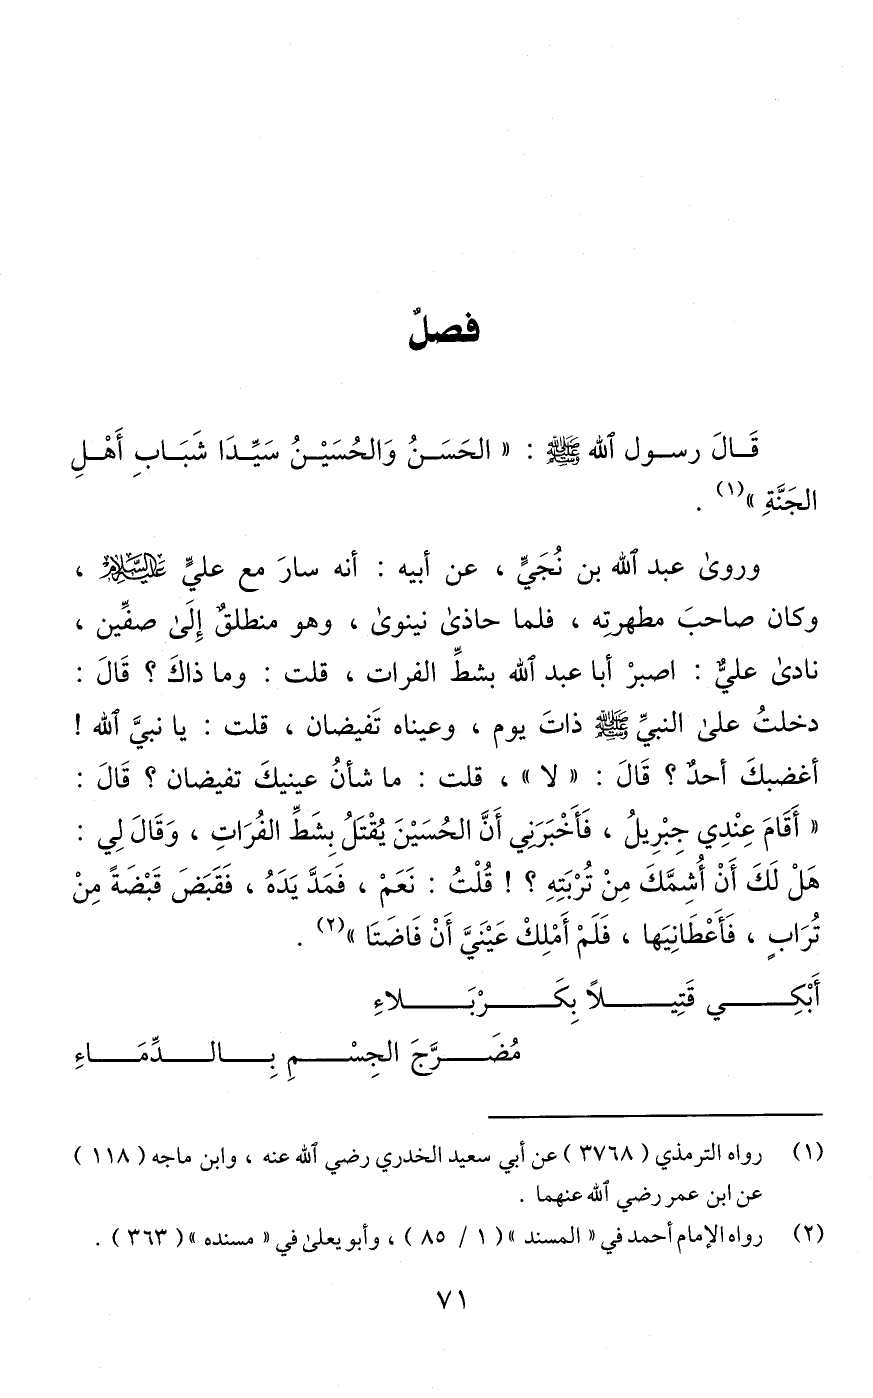 فصلٌ
قَـالَ رسـول ٱلله ﷺ : « الحَسَـنُ وَالحُسَيْـنُ سَيِّـدَا شَبَـابِ أَهْـلِ
الجَنَّةِ »(١) .
وروىٰ عبد ٱلله بن نُجَيٍّ ، عن أبيه : أنه سارَ مع عليٍّ عليه السلام ،
وكان صاحبَ مطهرتِه ، فلما حاذىٰ نينوىٰ ، وهو منطلقٌ إِلَىٰ صفِّين ،
نادىٰ عليٌّ : اصبرْ أبا عبد ٱلله بشطِّ الفرات ، قلت : وما ذاكَ ؟ قَالَ :
دخلتُ علىٰ النبيِّ ﷺ ذاتَ يوم ، وعيناه تَفيضان ، قلت : يا نبيَّ ٱلله !
أغضبكَ أحدٌ ؟ قَالَ : « لا » ، قلت : ما شأنُ عينيكَ تفيضان ؟ قَالَ :
« أَقَامَ عِنْدِي جِبْرِيلُ ، فَأَخْبَرَنِي أَنَّ الحُسَيْنَ يُقْتَلُ بِشَطِّ الفُرَاتِ ، وَقَالَ لِي :
هَلْ لَكَ أَنْ أُشِمَّكَ مِنْ تُرْبَتِهِ ؟ ! قُلْتُ : نَعَمْ ، فَمَدَّ يَدَهُ ، فَقَبَضَ قَبْضَةً مِنْ
تُرَابٍ ، فَأَعْطَانِيَها ، فَلَمْ أَمْلِكْ عَيْنَيَّ أَنْ فَاضَتَا »(٢) .
أَبْكِـــي قَتِيـــلاً بِكَـــرْبَـــلاءِ
مُضَـــرَّجَ الجِسْـــمِ بِـــالـــدِّمَـــاءِ
(١) رواه الترمذي ( ٣٧٦٨ ) عن أبي سعيد الخدري رضي ٱلله عنه ، وابن ماجه ( ١١٨ )
عن ابن عمر رضي ٱلله عنهما .
(٢) رواه الإمام أحمد في « المسند » ( ١ / ٨٥ ) ، وأبو يعلىٰ في « مسنده » ( ٣٦٣ ) .
٧١